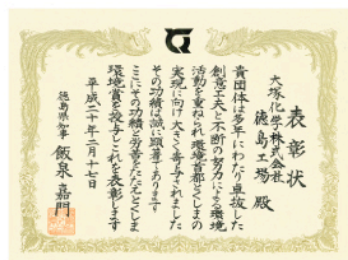 表彰状
大塚化学株式会社
徳島工場 殿
貴団体は多年にわたり卓抜した
創意工夫と不断の努力による環境
活動を重ねられ環境首都とくしまの
実現に向け大きく寄与されました
その功績は誠に顕著であります
ここにその功績と労苦をたたえとくしま
環境賞を授与しこれを表彰します
平成二十年二月十七日
徳島県知事 飯泉嘉門